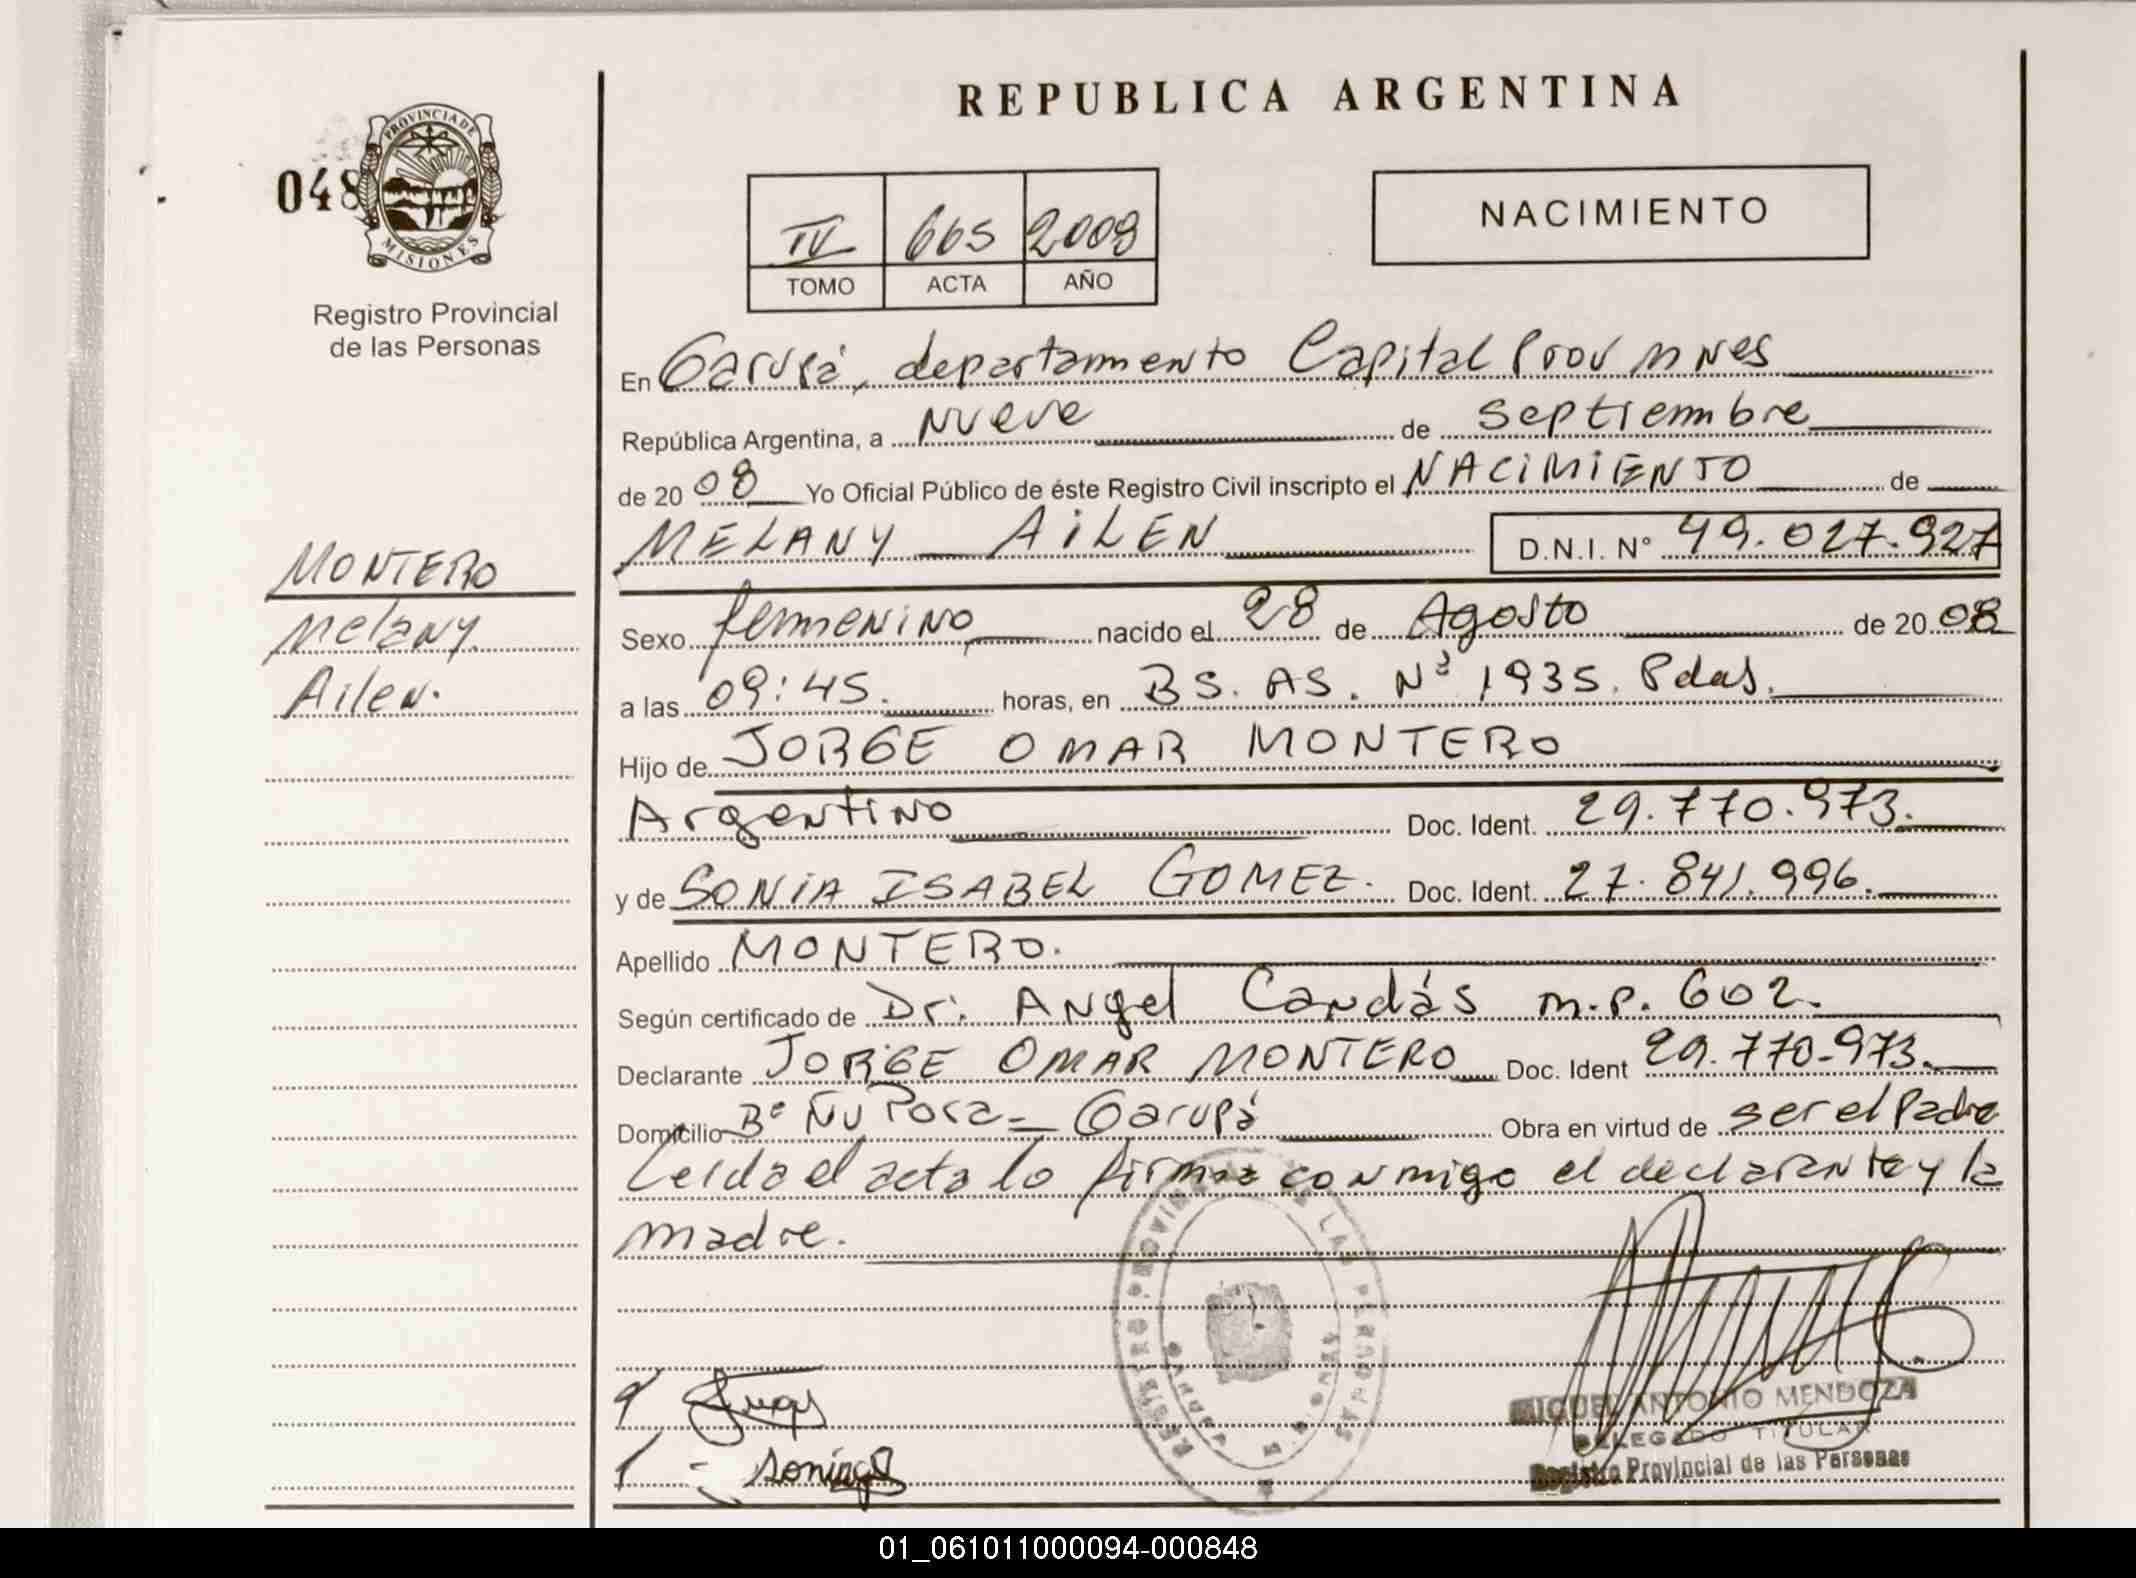 REPUBLICA ARGENTINA
048
PROVINCIA DE
MISIONES
Registro Provincial
de las Personas
IV 665 2008
TOMO ACTA AÑO
NACIMIENTO
En Garupá, departamento Capital Prov Mnes
República Argentina, a Nueve de Septiembre
de 20 08 Yo Oficial Público de éste Registro Civil inscripto el NACIMIENTO de
MELANY AILEN D.N.I. Nº 49.027.927
MONTERO
Melany
Ailen.
Sexo femenino nacido el 28 de Agosto de 20 08
a las 09:45. horas, en BS. AS. Nº 1935. Pdas.
Hijo de JORGE OMAR MONTERO
Argentino Doc. Ident. 29.770.973.
y de SONIA ISABEL GOMEZ. Doc. Ident. 27.841.996.
Apellido MONTERO.
Según certificado de Dr. Angel Candás m.p. 602.
Declarante JORGE OMAR MONTERO Doc. Ident 29.770.973.
Domicilio Bº Ñu Pora - Garupá Obra en virtud de ser el Padre
Leída el acta lo firma conmigo el declarante y la
madre.
REGISTRO PROVINCIAL DE LAS PERSONAS
GARUPA
MIGUEL ANTONIO MENDOZA
DELEGADO TITULAR
Registro Provincial de las Personas
01_061011000094-000848